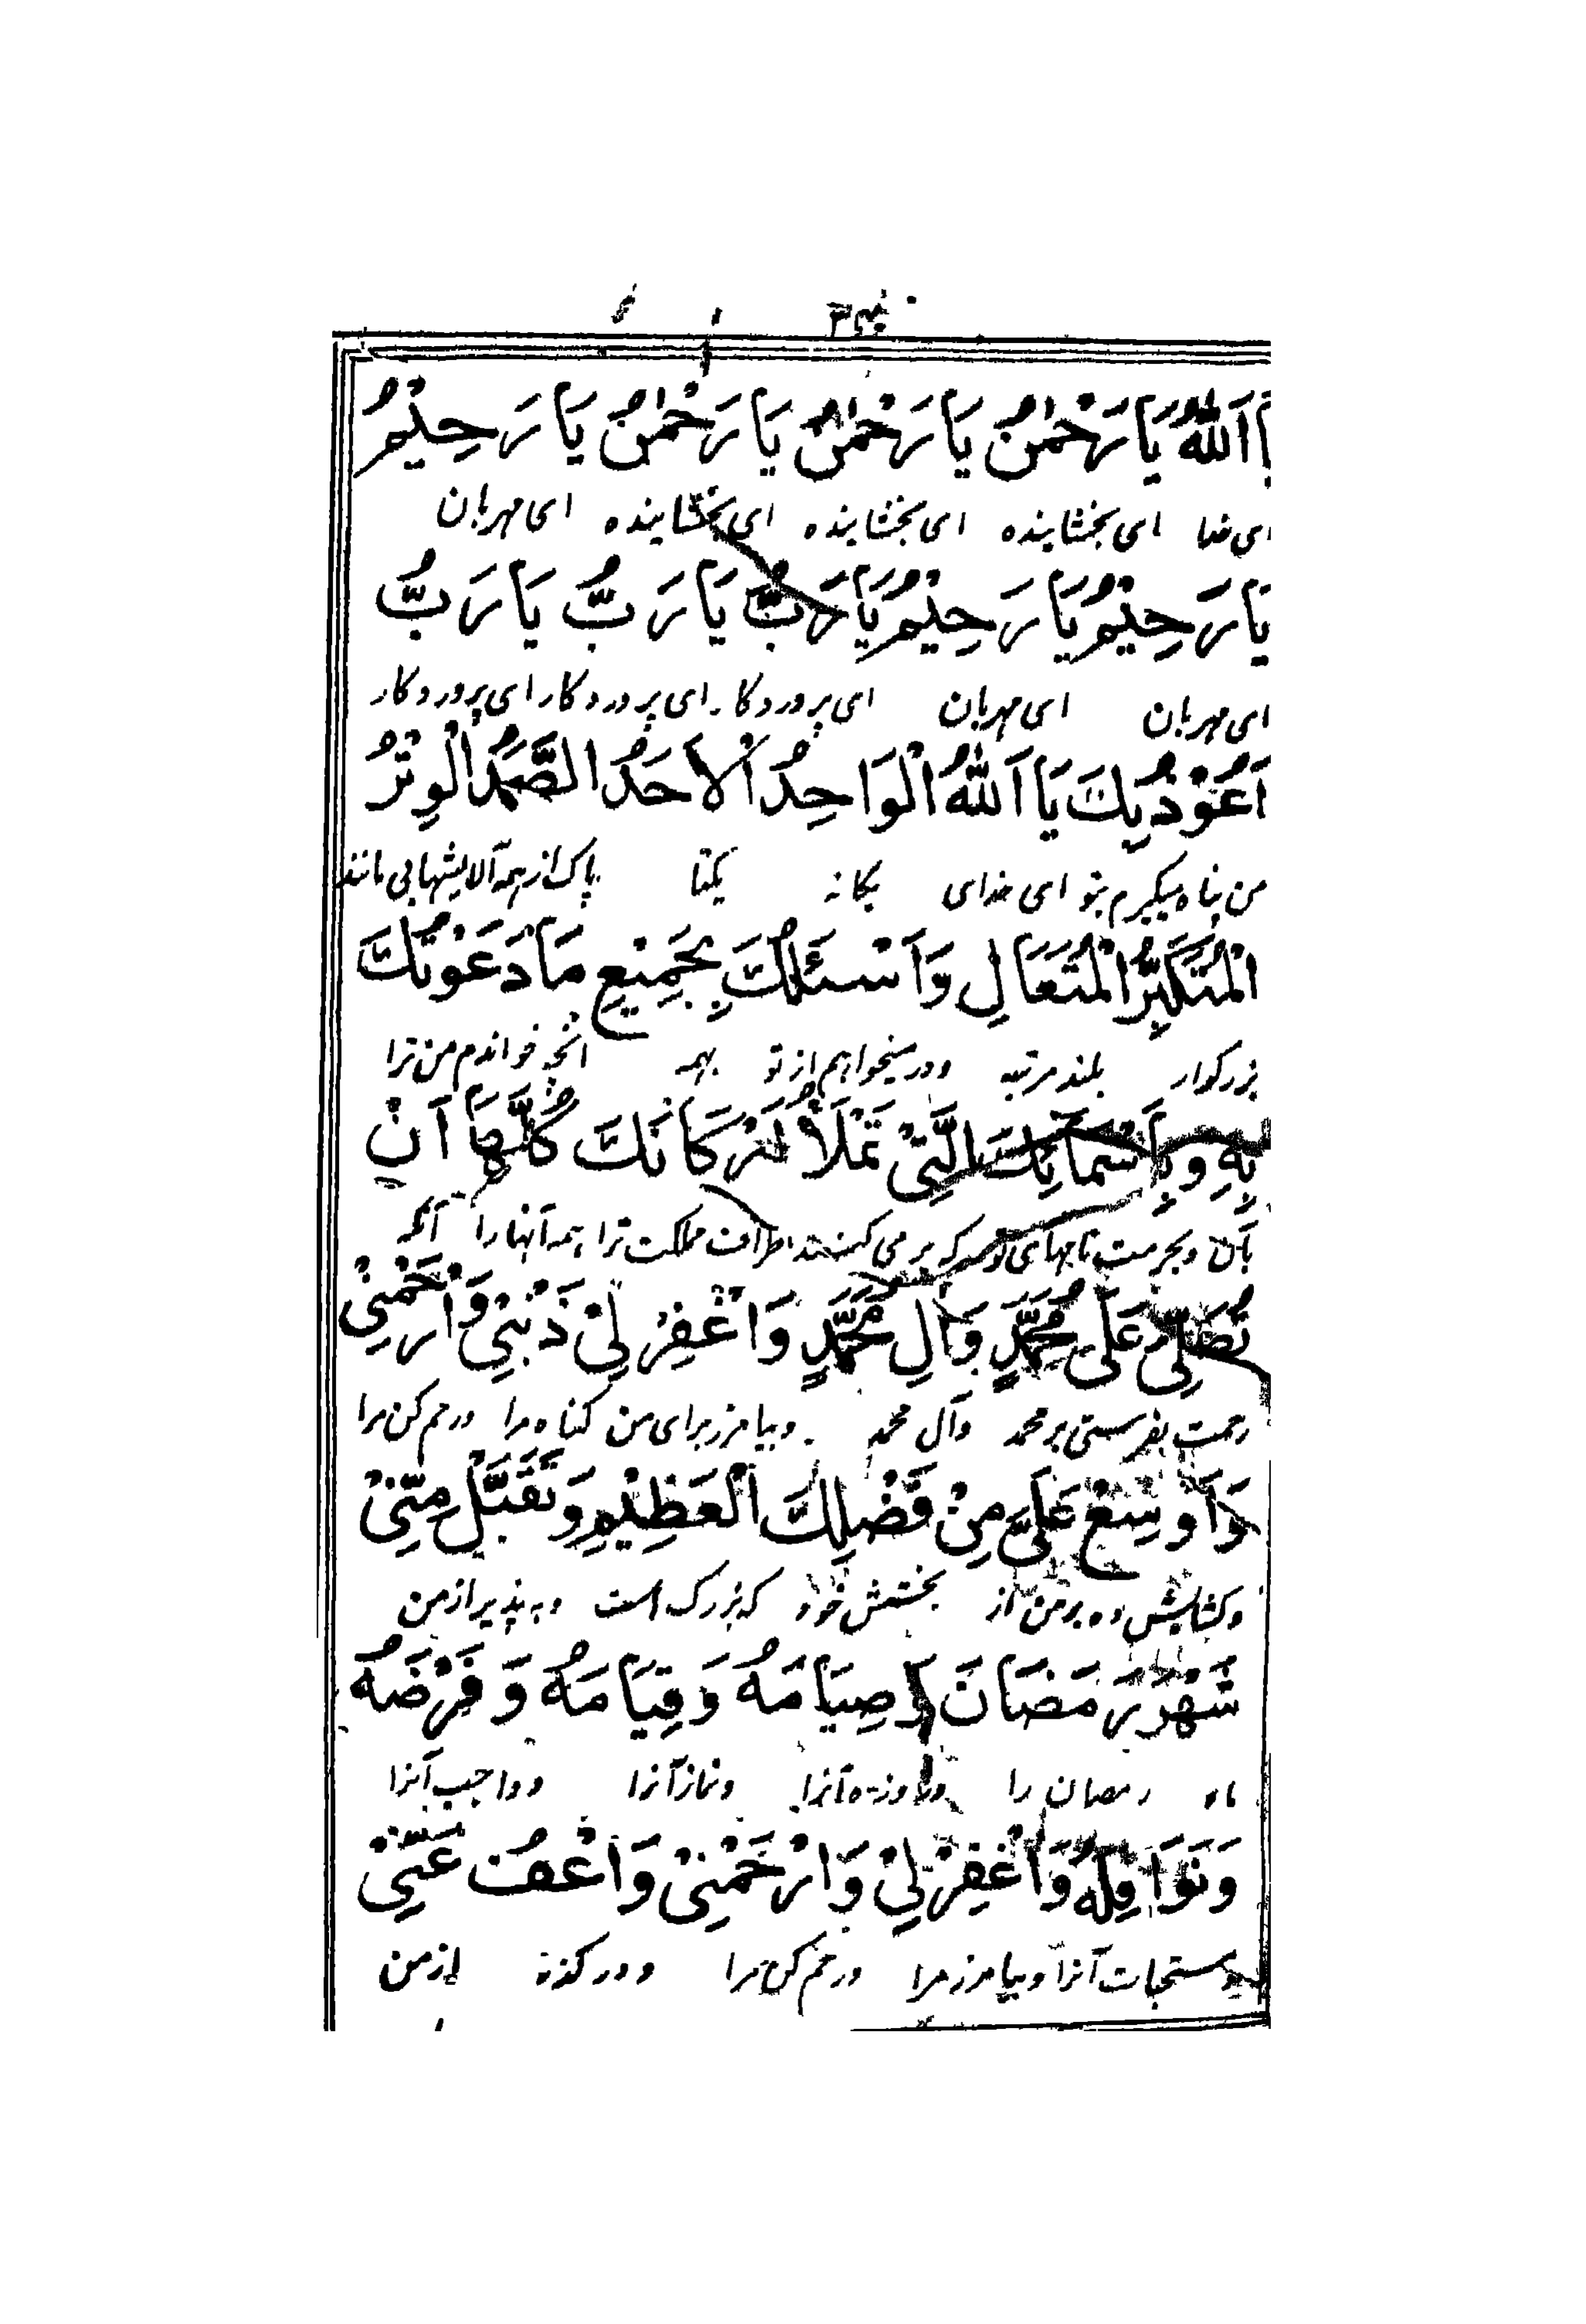 يَا اَللّٰهُ يَا رَحْمٰنُ يَا رَحْمٰنُ يَا رَحْمٰنُ يَا رَحِيْمُ
ای خدا ای بخشاینده ای بخشاینده ای بخشاینده ای مهربان
يَا رَحِيْمُ يَا رَحِيْمُ يَا رَبُّ يَا رَبُّ يَا رَبُّ
ای مهربان ای مهربان ای پروردکار ای پروردکار ای پروردکار
اَعُوْذُ بِكَ يَا اَللّٰهُ الْوَاحِدُ الْاَحَدُ الصَّمَدُ الْوِتْرُ
من پناه میکیرم بتو ای خدای یکانه یکتا پاک از همه آلایشها بی مانند
الْمُتَكَبِّرُ الْمُتَعَالِ وَاَسْئَلُكَ بِجَمِيْعِ مَا دَعَوْتُكَ
بزرکوار بلند مرتبه و در میخواهم از تو بهمه انچه خواندم من ترا
بِهِ وَبِاَسْمَائِكَ الَّتِيْ تَمْلَأُ اَرْكَانَكَ كُلَّهَا اَنْ
بآن و بحرمت نامهای تو که پر می کنند اطراف مملکت ترا همه آنها را آنکه
تُصَلِّيَ عَلَى مُحَمَّدٍ وَآلِ مُحَمَّدٍ وَاغْفِرْ لِيْ ذَنْبِيْ وَارْحَمْنِيْ
رحمت بفرستی بر محمد وآل محمد و بیامرز برای من کناه مرا ورحم کن مرا
وَاَوْسِعْ عَلَيَّ مِنْ فَضْلِكَ الْعَظِيْمِ وَتَقَبَّلْ مِنِّيْ
وکشایش ده بر من از بخشش خود که بزرک است وبه پذیر از من
شَهْرَ رَمَضَانَ وَصِيَامَهُ وَقِيَامَهُ وَفَرْضَهُ
ماه رمضان را وروزه آنرا ونماز آنرا وواجب آنرا
وَنَوَافِلَهُ وَاغْفِرْ لِيْ وَارْحَمْنِيْ وَاعْفُ عَنِّيْ
ومستحبات آنرا وبیامرز مرا ورحم کن مرا ودر کذر از من